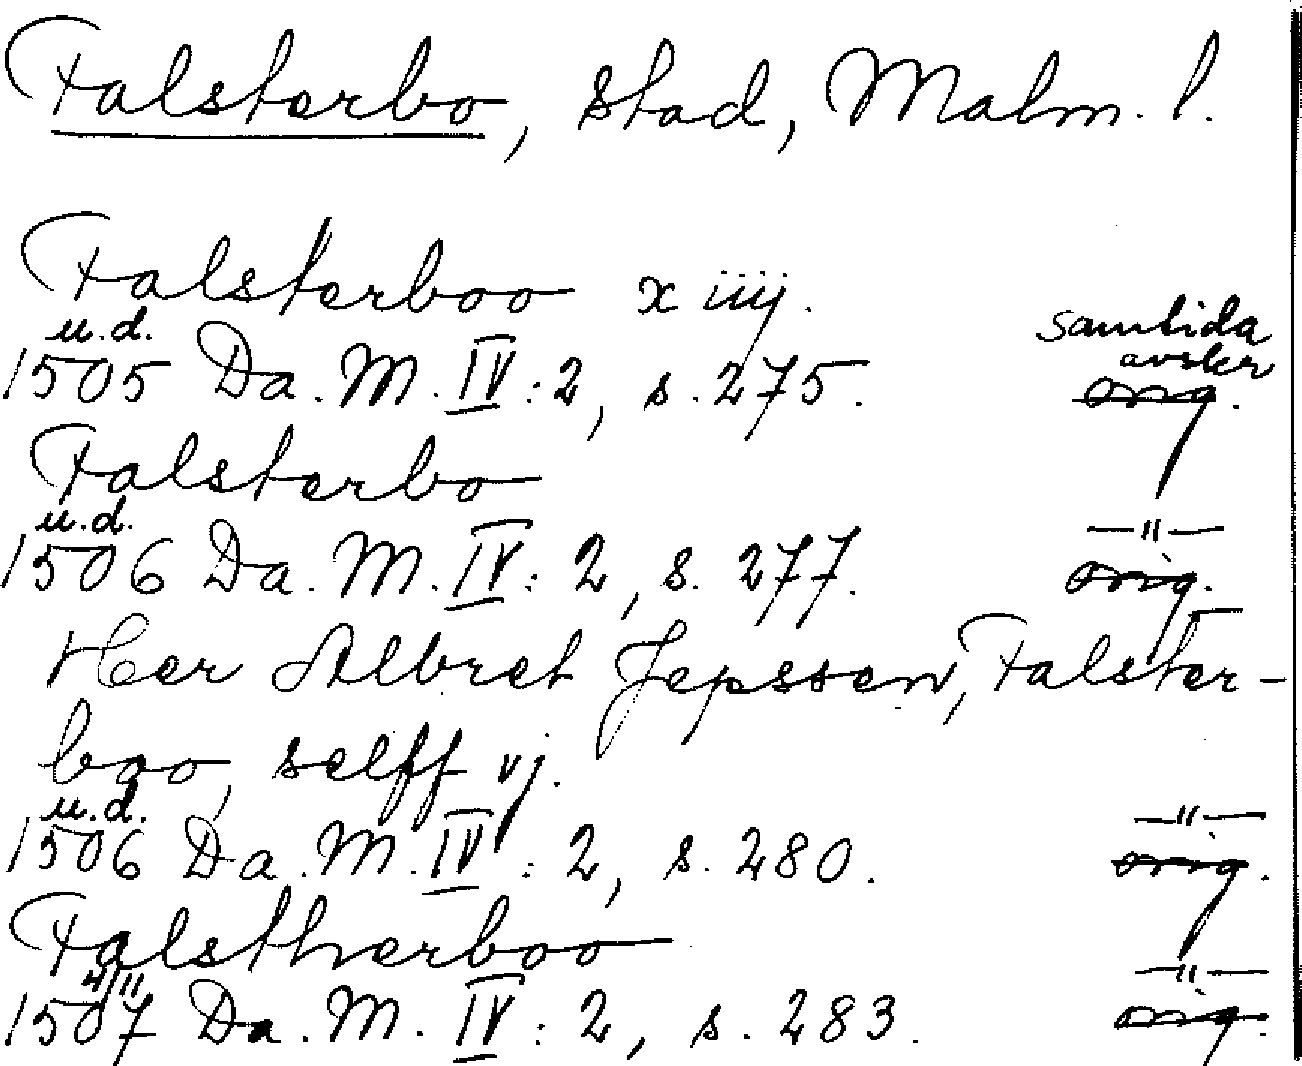 Falsterbo, stad, Malm. l.
Falsterboo x iiij.
u.d. samtida avskr
1505 Da. M. IV: 2, s. 275. orig.
Falsterbo
u.d. —"—
1506 Da. M. IV: 2, s. 277. orig.
Her Albret Jepssen, Falster-
boo, selff vj.
u.d. —"—
1506 Da. M. IV: 2, s. 280. orig.
Falstherboo
4/11 —"—
1507 Da. M. IV: 2, s. 283. orig.